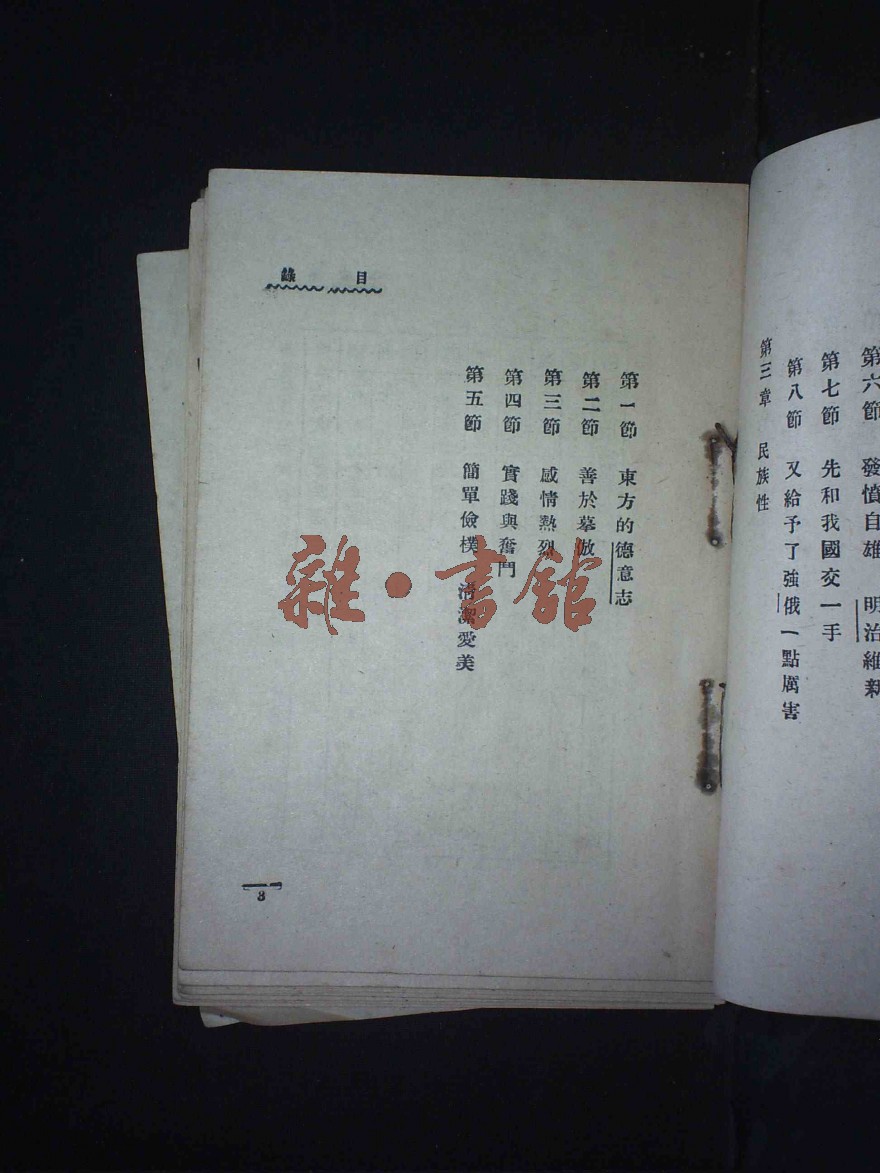 第六節 發憤自雄 明治維新
第七節 先和我國交一手
第八節 又給予了強俄一點厲害
第三章 民族性
目錄
第一節 東方的德意志
第二節 善於摹倣
第三節 感情熱烈
第四節 實踐與奮鬥
第五節 簡單儉樸 清潔愛美
3
雜·書館